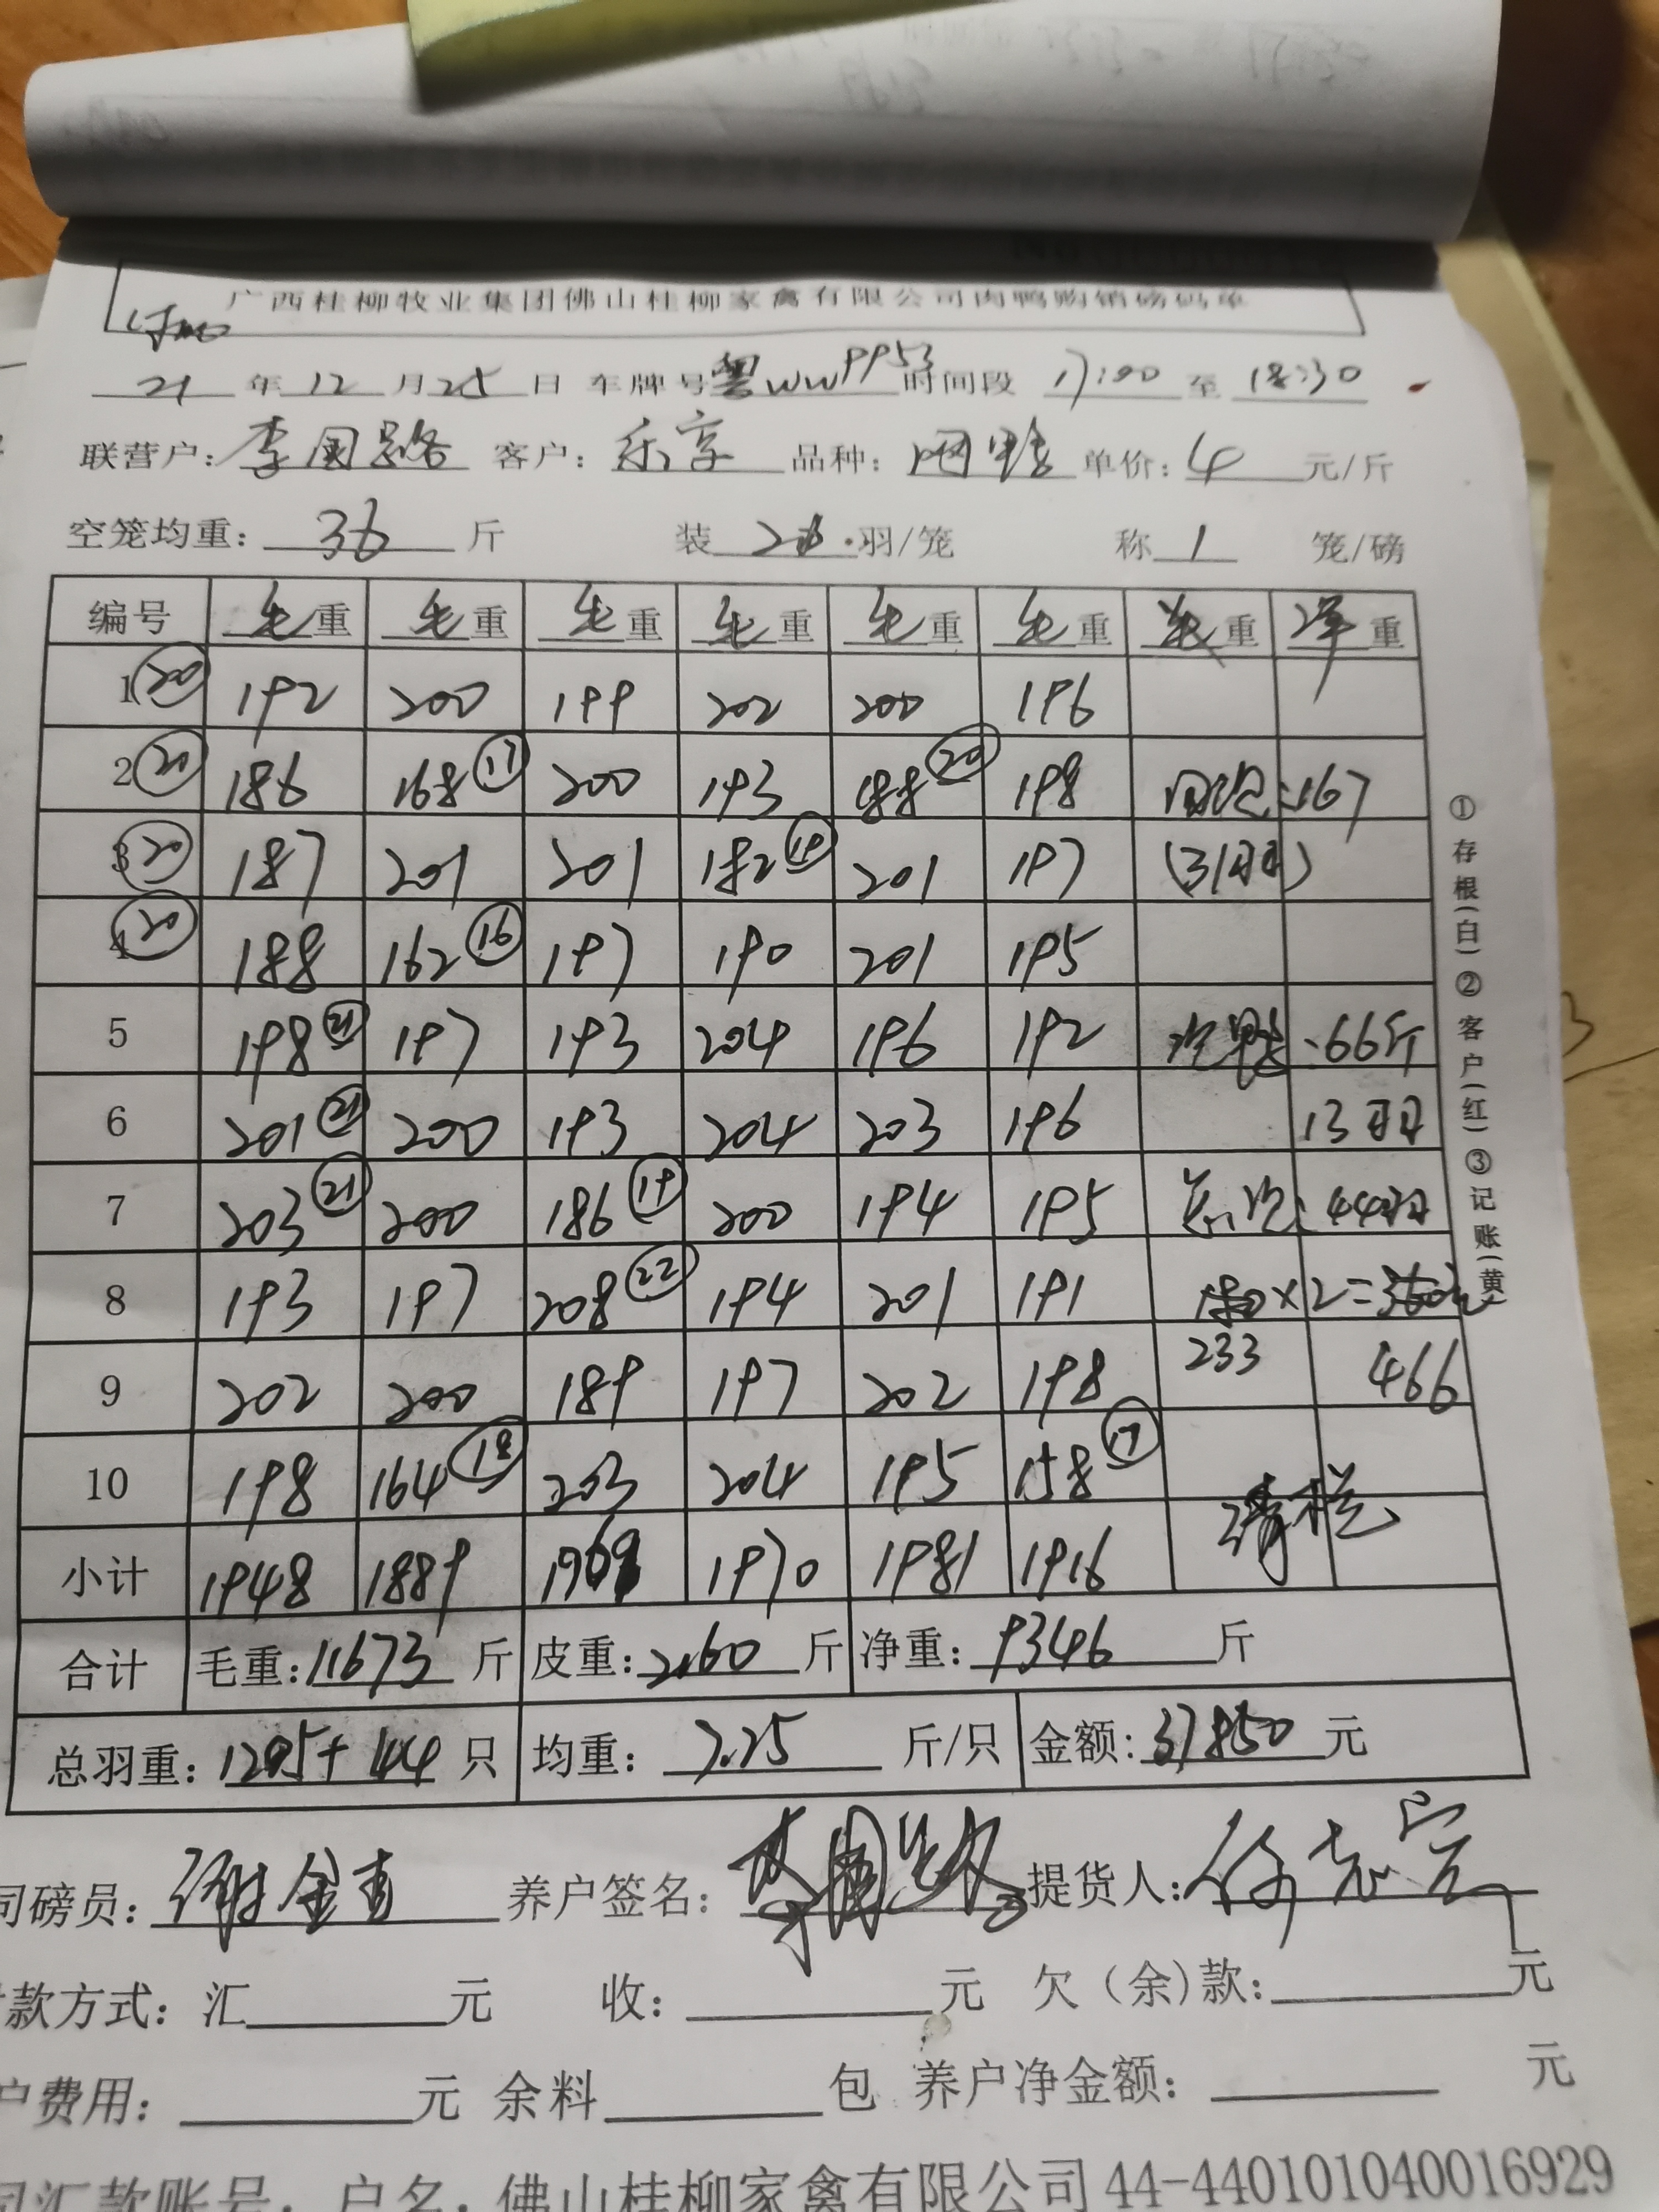 广西桂柳牧业集团佛山桂柳家禽有限公司肉鸭购销磅码单
21 年 12 月 25 日 车牌号 粤WWPP53 时间段 17:00 至 18:30
联营户: 李国 客户: 乐享 品种: 网鸭 单价: 4 元/斤
空笼均重: 36 斤 装 羽/笼 称 1 笼/磅
编号 毛重 毛重 毛重 毛重 毛重 毛重 重 重
1 ⑳ 192 200 199 202 200 196
2 ⑳ 186 168 ⑰ 200 193 188 ⑳ 198 :167
3 ⑳ 187 201 201 182 ⑲ 201 197 (31羽)
4 ⑳ 188 162 ⑯ 197 190 201 195
5 198 ㉑ 197 193 204 196 192 鸭:66斤
6 201 ㉑ 200 193 204 203 196 13羽
7 203 ㉑ 200 186 ⑲ 200 194 195 44羽
8 193 197 208 ㉒ 194 201 191 180×2=360元
9 202 200 189 197 202 198 233 466
10 198 164 ⑱ 203 204 195 158 ⑰
清栏
小计 1948 1889 1969 1970 1981 1916
合计 毛重: 11673 斤 皮重: 2160 斤 净重: 9346 斤
总羽重: 1205+44 只 均重: 7.25 斤/只 金额: 37850 元
司磅员: 谢金 养户签名: 李国 提货人:
款方式: 汇 元 收: 元 欠(余)款: 元
户费用: 元 余料 包 养户净金额: 元
汇款账号: 户名: 佛山桂柳家禽有限公司 44-440101040016929
①存根(白)②客户(红)③记账(黄)